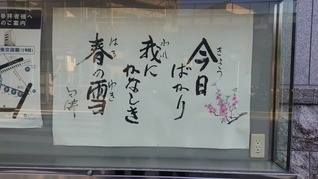 今日
きょう
ばかり
我に
われ
かなしき
春の雪
はる
ゆき
参拝者様へ
のご案内